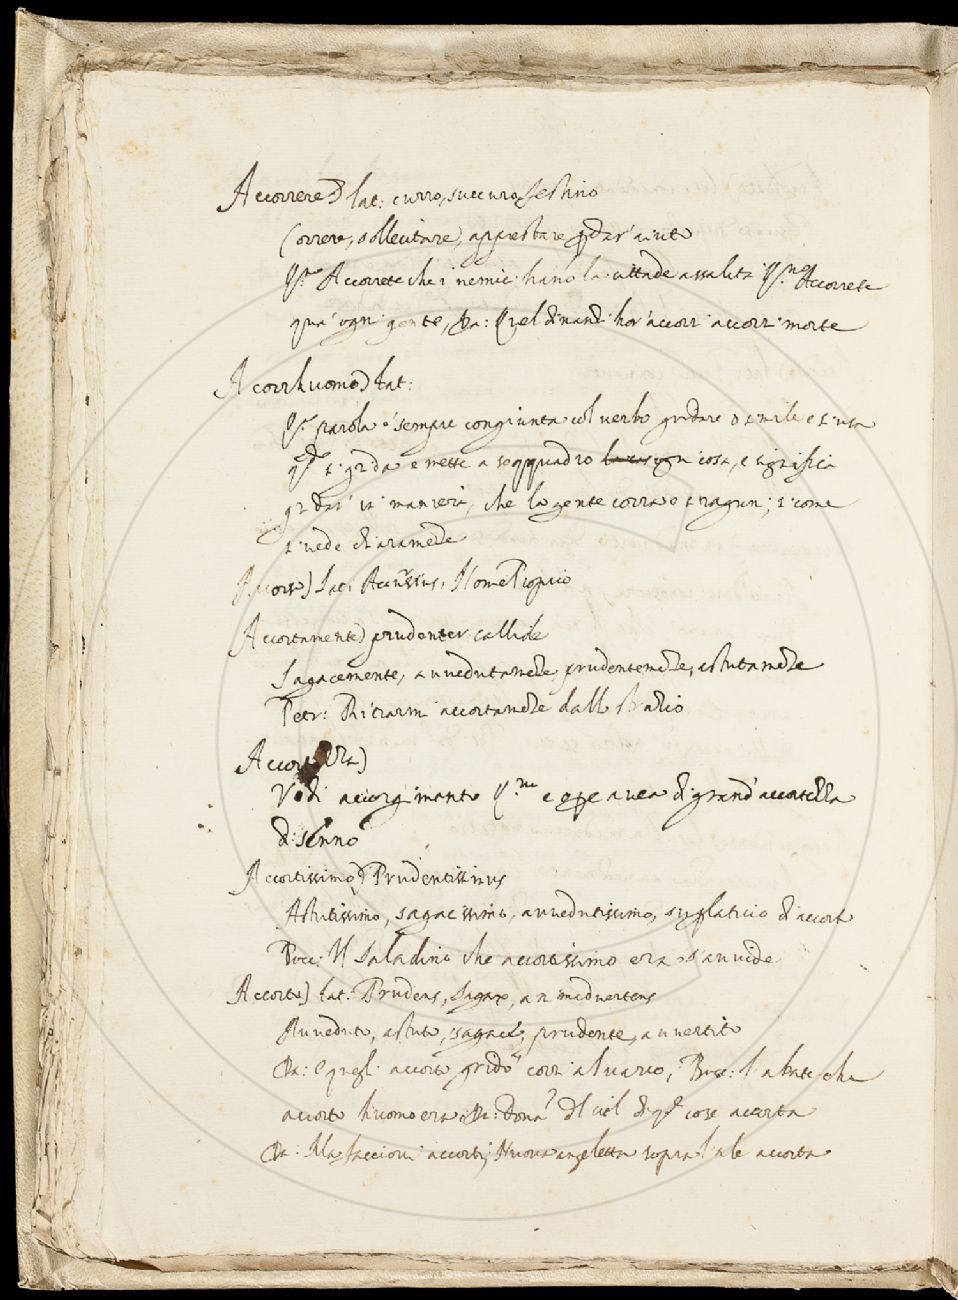 Accorrere) lat: curro, succurro, festino
Correre, sollecitare, apprestare dar' aiuto
Accorrete che i nemici hano la cittade assalita Accorrete
qua' ogni gente, Da: quel dinanzi hor' accorri accorri morte
Accorrhuomo) lat:
parola e' sempre congiunta col verbo gridare o simile e s'usa
si grida e mette a soqquadro ogni cosa, e significa
gridar' in maniera, che la gente corra e si raguni; si come
si uede chiaramente
Accorso) Lat: Accursius, Nome Proprio
Accortamente) prudenter callide
Sagacemente, auuedutamente, prudentemente, astutamente
Petr: Ritrarmi accortamente dallo strazio
Accortezza)
Vedi accorgimento e auea di grand' accortezza
di senno
Accortissimo) Prudentissimus
Astutissimo, sagacissimo, auuedutissimo, superlatiuo di accorto
Bocc: Il Saladino che accortissimo era s'auuide
Accorto) lat: Prudens, Sagax, animaduertens
Auueduto, astuto, sagace, prudente, auuertito
Da: E quegli accorto gridò corri al uarco, Bocc: l'abate che
accorto huomo era Da: Dona' del ciel di cose accorta
Da: Ma faccioui accorti, Nuoua angeletta sopra l'ale accorta